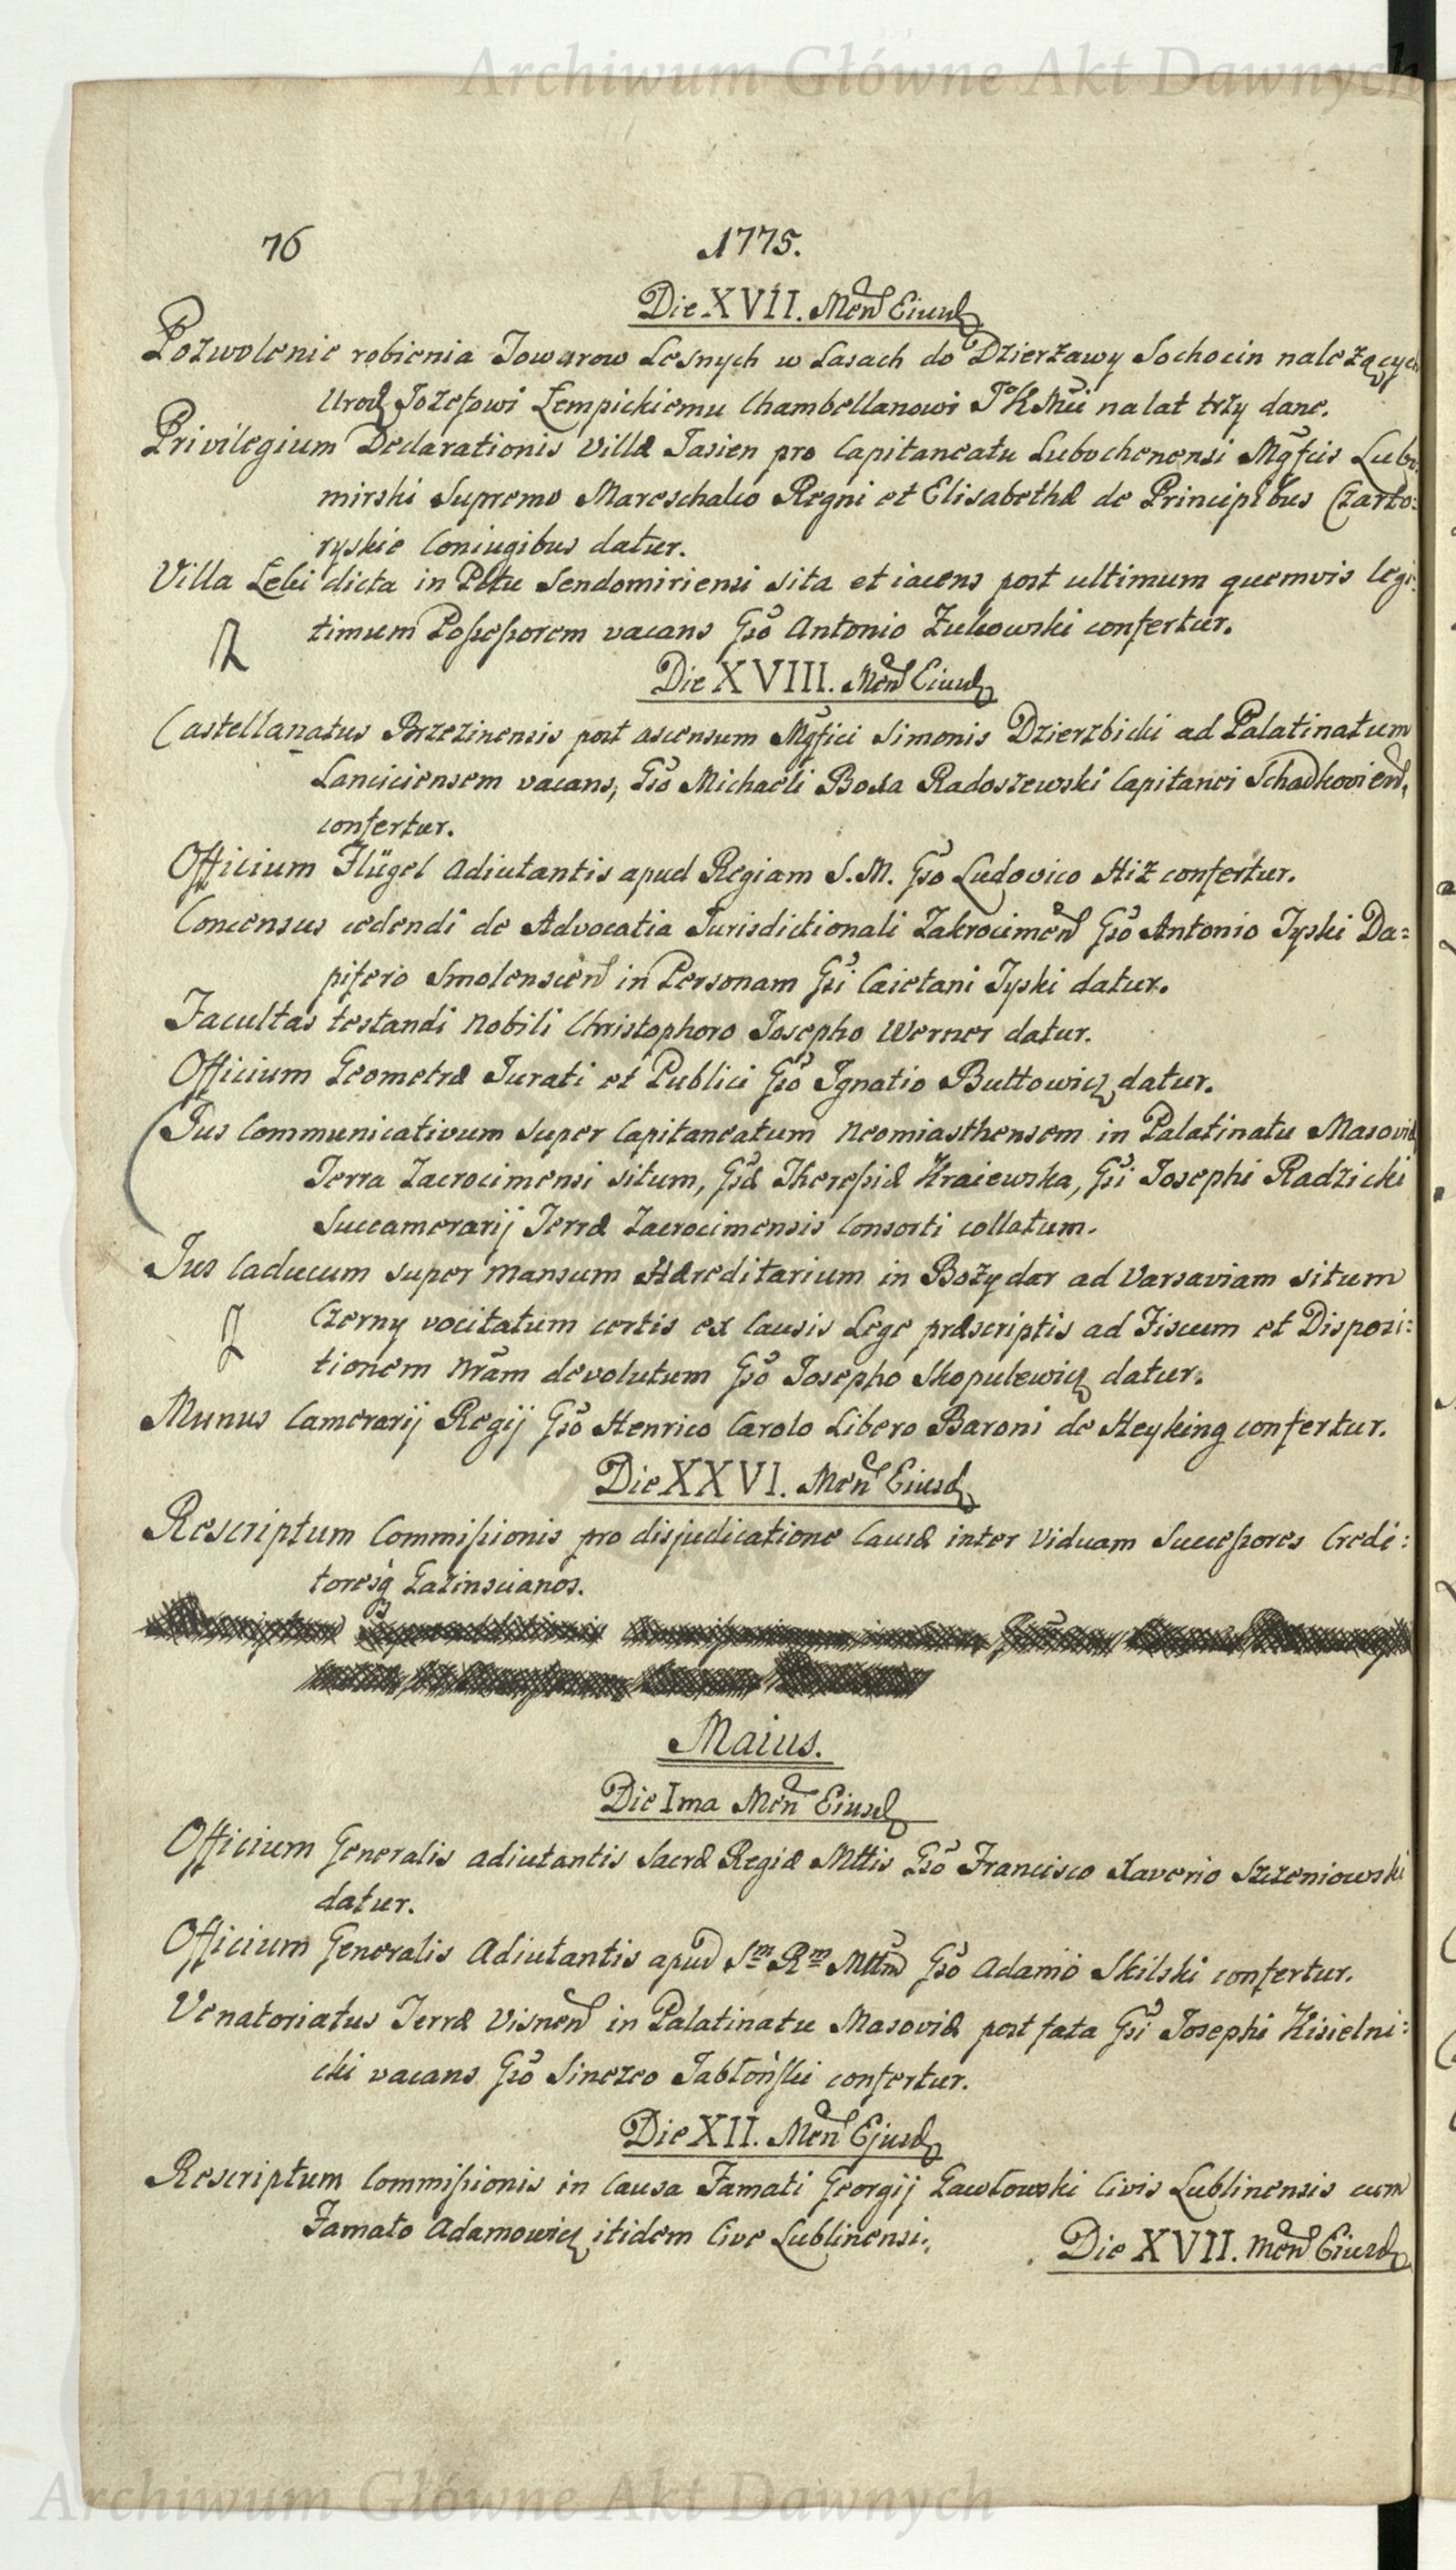 Archiwum Główne Akt Dawnych
76 1775.
Die XVII. Men̄ Eiusd
Pozwolenie robienia Towarow Lesnych w Lasach do Dzierżawy Sochocin należących
Urod Jozefowi Łempickiemu Chambellanowi JKMci na lat trzy dane.
Privilegium Declarationis Villæ Jasien pro Capitaneatu Lubochenensi Mgfcis Lubo:
mirski Supremo Mareschalco Regni et Elisabethæ de Principibus Czarto:
ryskie Coniugibus datur.
Villa Łeki dicta in Pttu Sendomiriensi sita et iacens post ultimum quemvis legi:
timum Possessorem vacans Gso Antonio Żukowski confertur.
Die XVIII. Men̄ Eiusd
Castellanatus Brzezinensis post ascensum Mgfici Simonis Dzierzbicki ad Palatinatum
Lanciciensem vacans, Gso Michaeli Boxa Radoszewski Capitanei Schadkovien̄,
confertur.
Officium Flügel Adiutantis apud Regiam S. M. Gso Ludovico Hiż confertur.
Concensus cedendi de Advocatia Jurisdictionali Zakrocimen̄ Gso Antonio Tyski Da=
pifero Smolenscen̄ in Personam Gsi Caietani Tyski datur.
Facultas testandi Nobili Christophoro Josepho Werner datur.
Officium Geometræ Jurati et Publici Gso Ignatio Buttowicz datur.
Jus Communicativum super Capitaneatum Neomiasthensem in Palatinatu Masoviæ
Terra Zacrocimensi situm, Gsæ Theressiæ Kraiewska, Gsi Josephi Radzicki
Succamerarij Terræ Zacrocimensis Consorti collatum.
Jus Caducum super Mansum Hæreditarium in Bożydar ad Varsaviam situm
Czerny vocitatum certis ex Causis Lege præscriptis ad Fiscum et Disposi:
tionem Nr̄am devolutum Gso Josepho Skopulewicz datur.
Munus Camerarij Regij Gso Henrico Carolo Libero Baroni de Heyking confertur.
Die XXVI. Men̄ Eiusd
Rescriptum Commissionis pro disjudicatione Causæ inter Viduam Successores Credi:
toresq Gazinscianos.
Maius.
Die Ima Men̄ Eiusd
Officium Generalis Adiutantis Sacræ Regiæ Mttis Gso Francisco Xaverio Szczeniowski
datur.
Officium Generalis Adiutantis apud Sm Rm Mttm Gso Adamo Skilski confertur.
Venatoriatus Terræ Visnen̄ in Palatinatu Masoviæ post fata Gsi Josephi Kisielni:
cki vacans Gso Sinezeo Jabłoński confertur.
Die XII. Men̄ Ejusd
Rescriptum Commissionis in Causa Famati Georgij Gawłowski Civis Lublinensis cum
Famato Adamowicz itidem Cive Lublinensi.
Die XVII. Men̄ Eiusd
Archiwum Główne Akt Dawnych